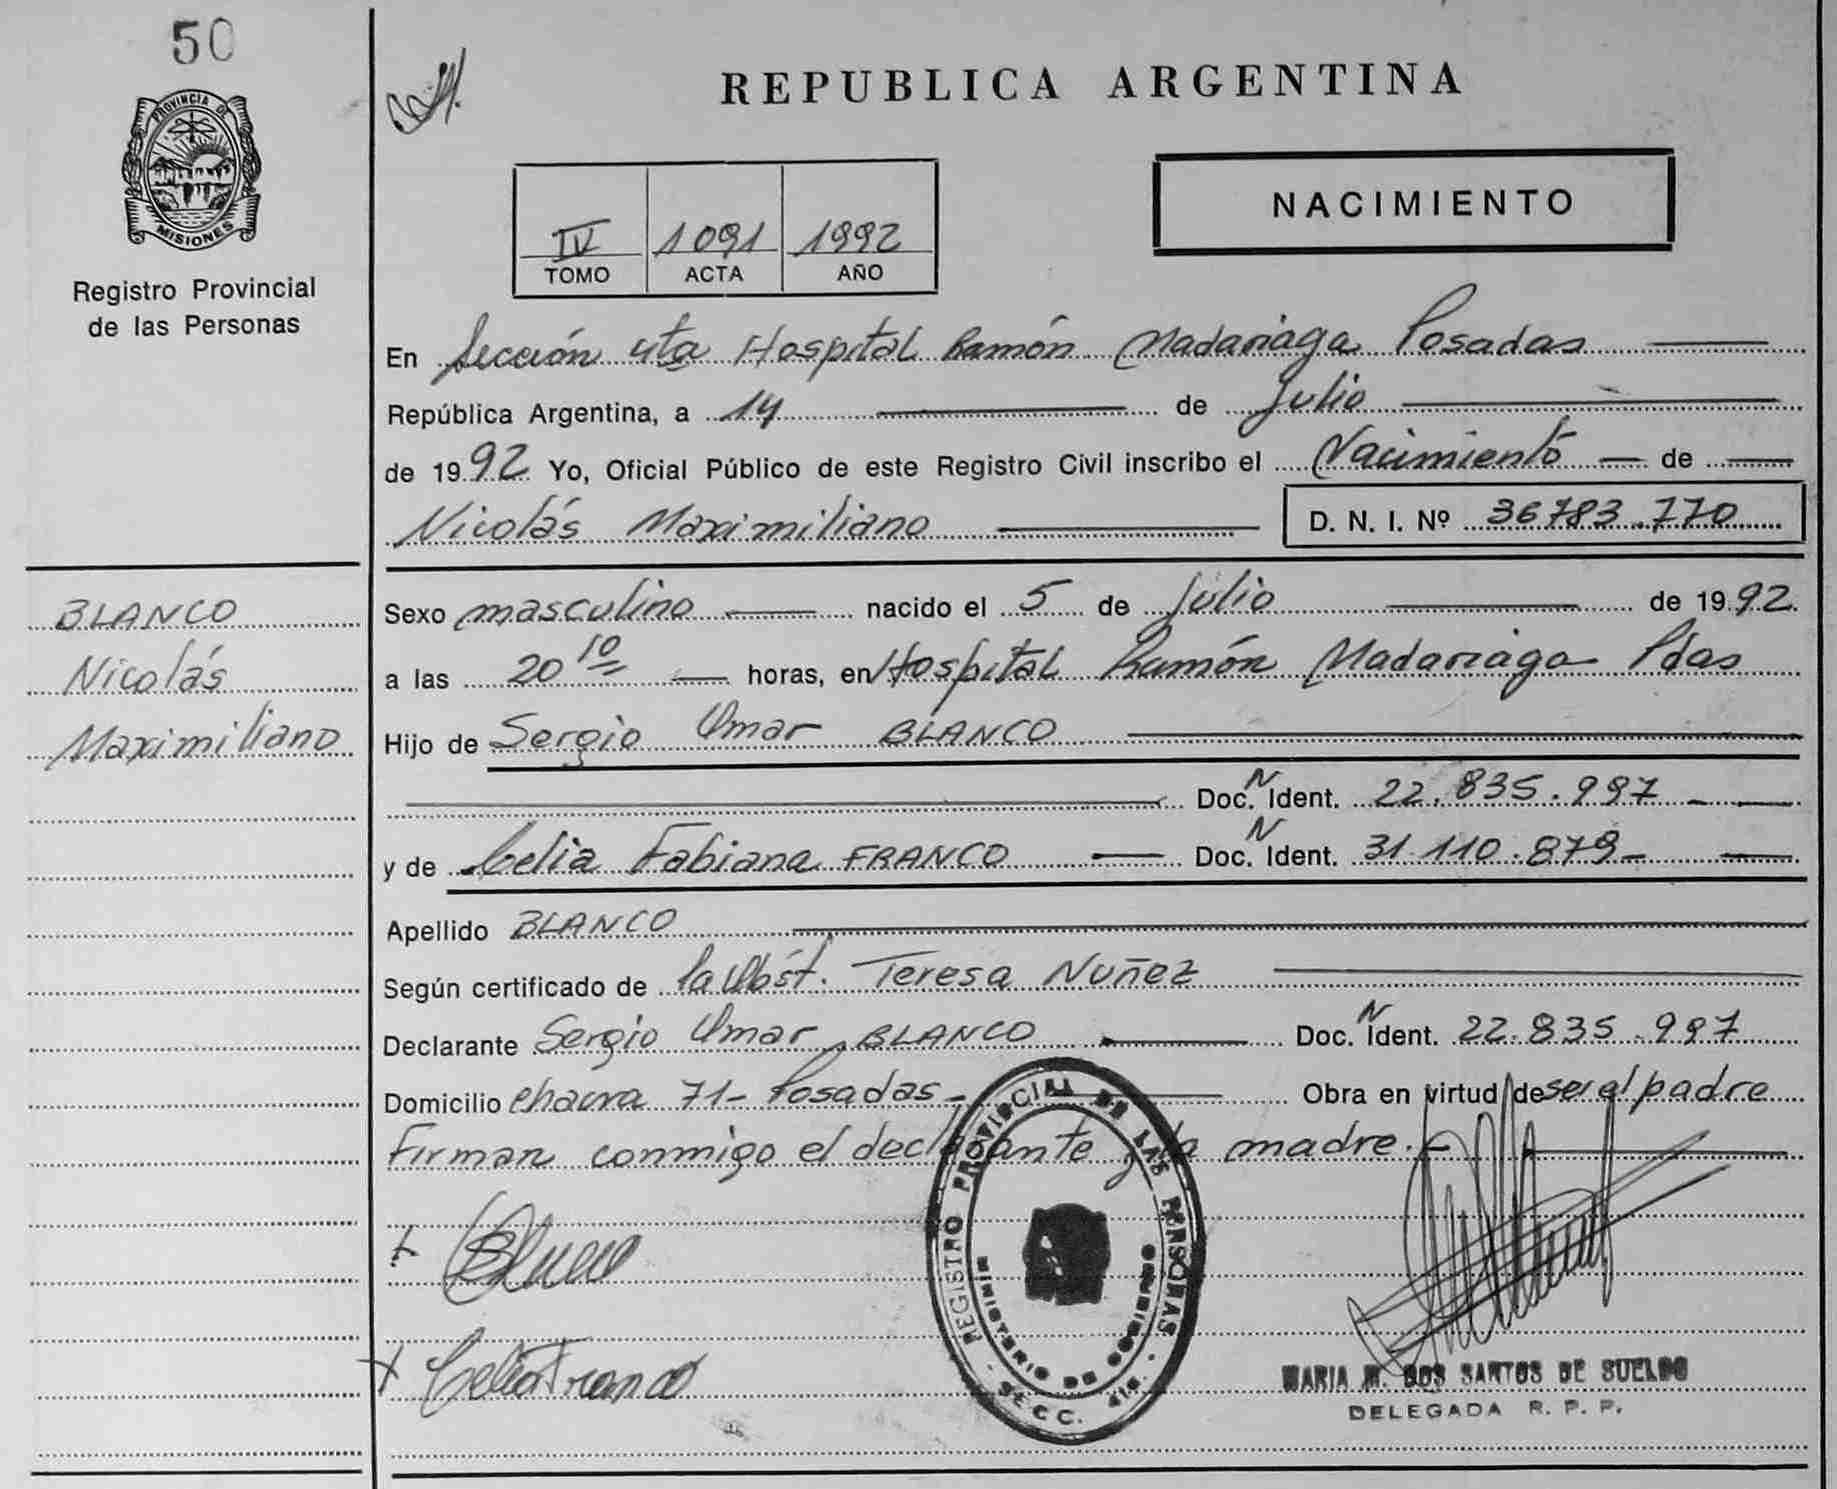 50
PROVINCIA DE
MISIONES
Registro Provincial
de las Personas
BLANCO
Nicolás
Maximiliano
REPUBLICA ARGENTINA
IV 1091 1992
TOMO ACTA AÑO
NACIMIENTO
En Sección 4ta Hospital Ramón Madariaga Posadas
República Argentina, a 14 de Julio
de 1992 Yo, Oficial Público de este Registro Civil inscribo el Nacimiento de
Nicolás Maximiliano D. N. I. Nº 36783.770
Sexo masculino nacido el 5 de Julio de 1992
a las 20 10 horas, en Hospital Ramón Madariaga Pdas
Hijo de Sergio Omar BLANCO
Doc. N Ident. 22.835.997
y de Celia Fabiana FRANCO Doc. N Ident. 31.110.879
Apellido BLANCO
Según certificado de la Obst. Teresa Nuñez
Declarante Sergio Omar BLANCO Doc. N Ident. 22.835.997
Domicilio chacra 71- Posadas- Obra en virtud de ser el padre
Firman conmigo el declarante y la madre.-
Blanco
Celia Franco
REGISTRO PROVINCIAL DE LAS PERSONAS
MINISTERIO DE GOBIERNO
SECC. 4ta.
MARIA M. DOS SANTOS DE SUELDO
DELEGADA R. P. P.